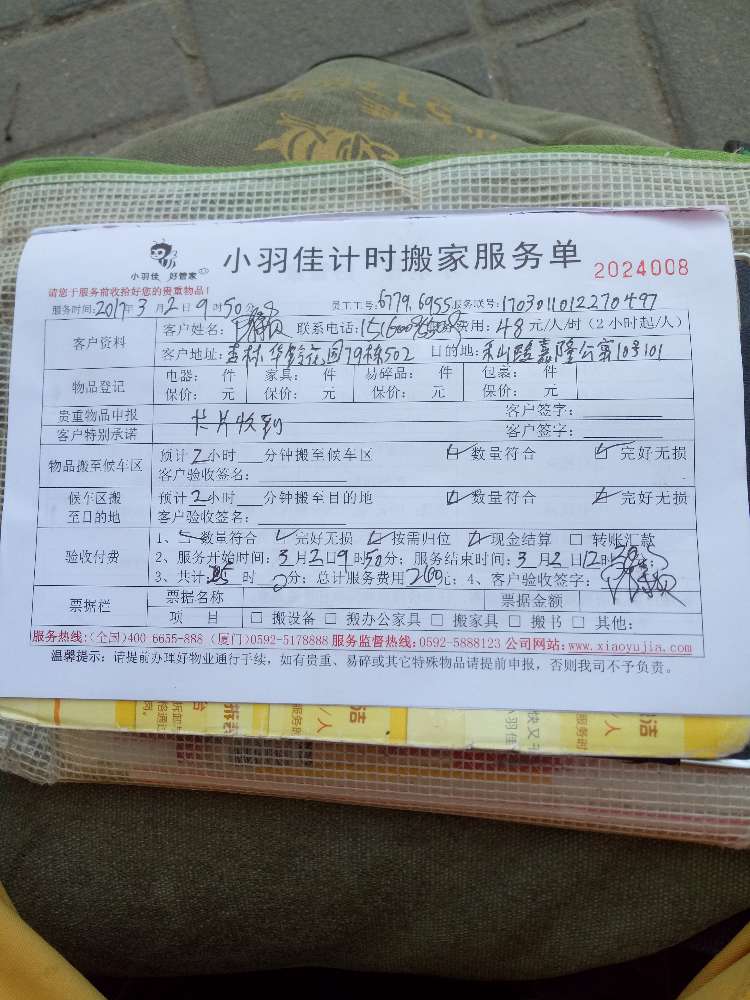 小羽佳 好管家
小羽佳计时搬家服务单 2024008
请您于服务前收拾好您的贵重物品!
服务时间:2017年3月2日9时50分 员工工号:6779.6955 服务联号:1703011012270497
客户资料 客户姓名: 联系电话: 费用:48元/人/时(2小时起/人)
客户地址: 79栋502 目的地:禾山 嘉隆公寓10号101
物品登记 电器: 件 家具: 件 易碎品: 件 包裹: 件
保价: 元 保价: 元 保价: 元 保价: 元
贵重物品申报 卡片收到 客户签字:
客户特别承诺 客户签字:
物品搬至候车区 预计2小时 分钟搬至候车区 数量符合 完好无损
客户验收签名:
保车区搬至目的地 预计2小时 分钟搬至目的地 数量符合 完好无损
客户验收签名:
验收付费 1、数量符合 完好无损 按需归位 现金结算 转账汇款
2、服务开始时间:3月2日9时50分; 服务结束时间:3月2日12时
3、共计 时 分; 总计服务费用 4、客户验收签字:
票据栏 票据名称 票据金额
项 目 搬设备 搬办公家具 搬家具 搬书 其他:
服务热线:(全国)400-6655-888 (厦门)0592-5178888 服务监督热线:0592-5888123 公司网站:www.xiaoyujia.com
温馨提示: 请提前办理好物业通行手续, 如有贵重、易碎或其它特殊物品请提前申报, 否则我司不予负责。